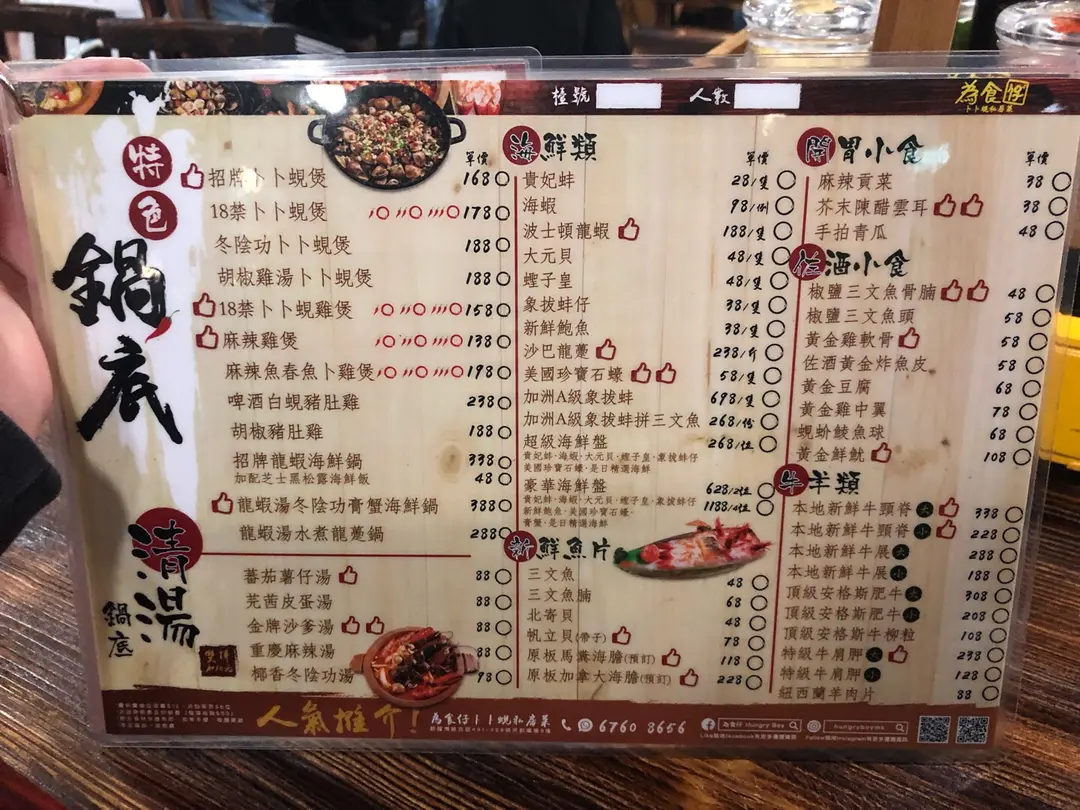 檯號 人數
為食仔
卜卜蜆私房菜
特色鍋底
單價
招牌卜卜蜆煲 168
18禁卜卜蜆煲 178
冬陰功卜卜蜆煲 188
胡椒雞湯卜卜蜆煲 188
18禁卜卜蜆雞煲 158
麻辣雞煲 138
麻辣魚春魚卜雞煲 198
啤酒白蜆豬肚雞 238
胡椒豬肚雞 188
招牌龍蝦海鮮鍋 338
加配芝士黑松露海鮮飯 48
龍蝦湯冬陰功膏蟹海鮮鍋 388
龍蝦湯水煮龍躉鍋 288
清湯鍋底
蕃茄薯仔湯 88
芫茜皮蛋湯 88
金牌沙爹湯 88
重慶麻辣湯 88
椰香冬陰功湯 98
海鮮類
單價
貴妃蚌 28/隻
海蝦 98/例
波士頓龍蝦 188/隻
大元貝 48/隻
蟶子皇 48/隻
象拔蚌仔 38/隻
新鮮鮑魚 38/隻
沙巴龍躉 238/斤
美國珍寶石蠔 58/隻
加洲A級象拔蚌 698/隻
加洲A級象拔蚌拼三文魚 268/份
超級海鮮盤 268/位
貴妃蚌·海蝦·大元貝·蟶子皇·象拔蚌仔
美國珍寶石蠔·是日精選海鮮
豪華海鮮盤 628/2位
貴妃蚌·海蝦·大元貝·蟶子皇·象拔蚌仔
1188/4位
新鮮鮑魚·美國珍寶石蠔·
膏蟹·是日精選海鮮
新鮮魚片
三文魚 48
三文魚腩 68
北寄貝 48
帆立貝(帶子) 78
原板馬糞海膽(預訂) 118
原板加拿大海膽(預訂) 228
開胃小食
單價
麻辣貢菜 38
芥末陳醋雲耳 38
手拍青瓜 48
佐酒小食
椒鹽三文魚骨腩 48
椒鹽三文魚頭 58
黃金雞軟骨 58
佐酒黃金炸魚皮 58
黃金豆腐 68
黃金雞中翼 78
蜆蚧鯪魚球 68
黃金鮮魷 108
牛羊類
本地新鮮牛頸脊 大 338
本地新鮮牛頸脊 小 228
本地新鮮牛展 大 288
本地新鮮牛展 小 188
頂級安格斯肥牛 大 308
頂級安格斯肥牛 小 208
頂級安格斯牛柳粒 108
特級牛肩胛 大 238
特級牛肩胛 小 128
紐西蘭羊肉片 88
人氣推介!
為食仔卜卜蜆私房菜
6760 8656
為食仔 Hungry Boy
hungryboymk